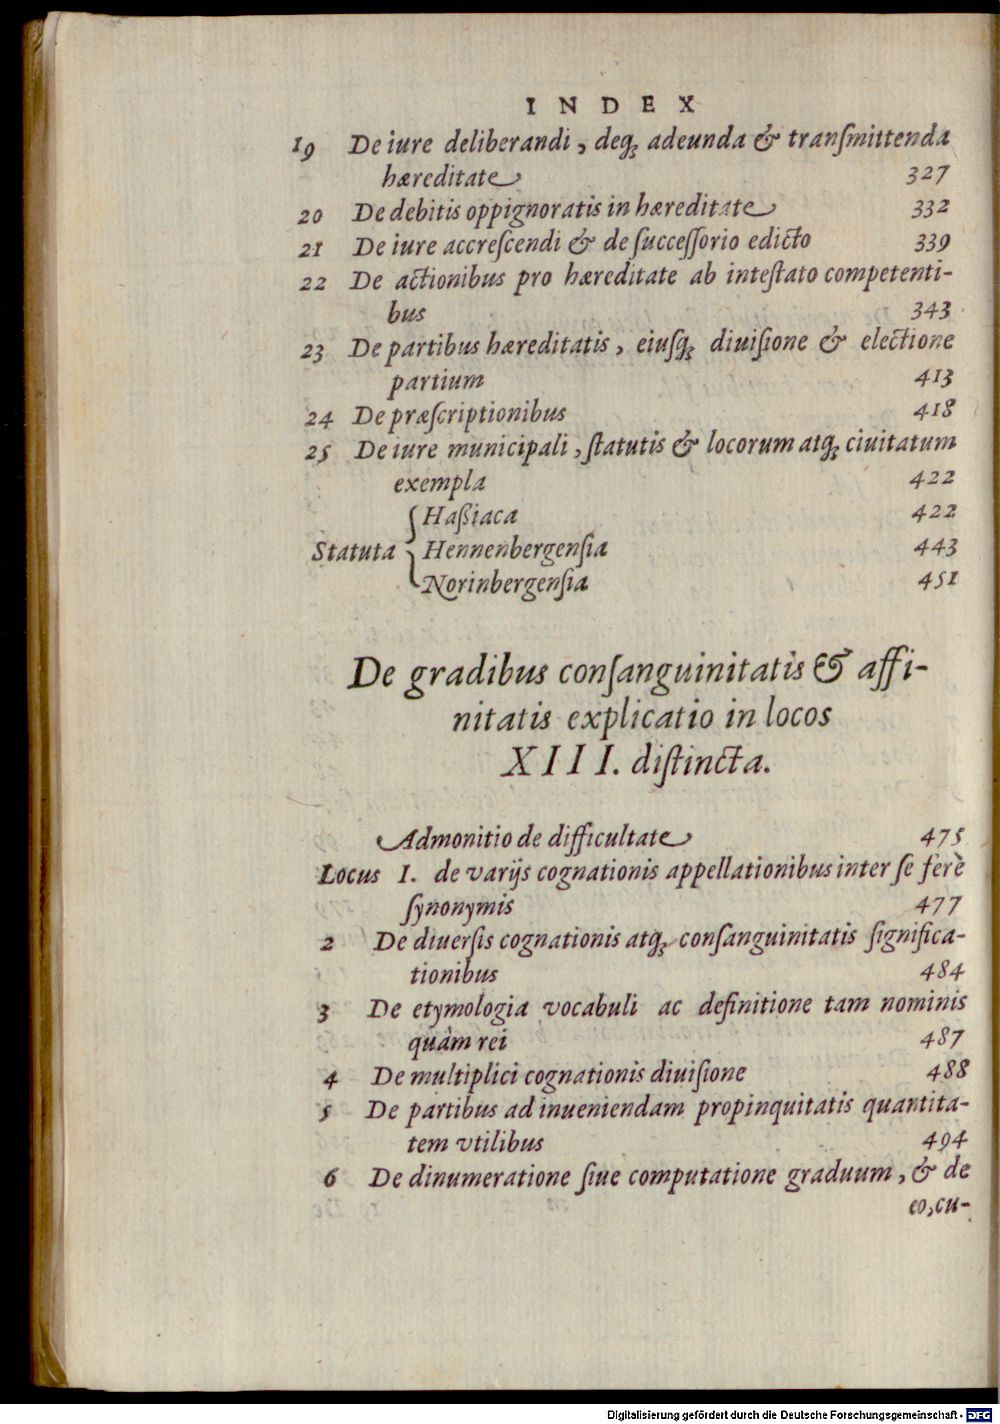 INDEX
19 De iure deliberandi, deqꝫ adeunda & tranſmittenda
hæreditate 327
20 De debitis oppignoratis in hæreditate 332
21 De iure accreſcendi & de ſucceſſorio edicto 339
22 De actionibus pro hæreditate ab inteſtato competenti-
bus 343
23 De partibus hæreditatis, eiuſqꝫ diuiſione & electione
partium 413
24 De præſcriptionibus 418
25 De iure municipali, ſtatutis & locorum atqꝫ ciuitatum
exempla 422
Haßiaca 422
Statuta Hennenbergenſia 443
Norinbergenſia 451
De gradibus conſanguinitatis & affi-
nitatis explicatio in locos
XIII. diſtincta.
Admonitio de difficultate 475
Locus I. de varijs cognationis appellationibus inter ſe ferè
ſynonymis 477
2 De diuerſis cognationis atqꝫ conſanguinitatis ſignifica-
tionibus 484
3 De etymologia vocabuli ac definitione tam nominis
quàm rei 487
4 De multiplici cognationis diuiſione 488
5 De partibus ad inueniendam propinquitatis quantita-
tem vtilibus 494
6 De dinumeratione ſiue computatione graduum, & de
eo, cu-
Digitalisierung gefördert durch die Deutsche Forschungsgemeinschaft - DFG